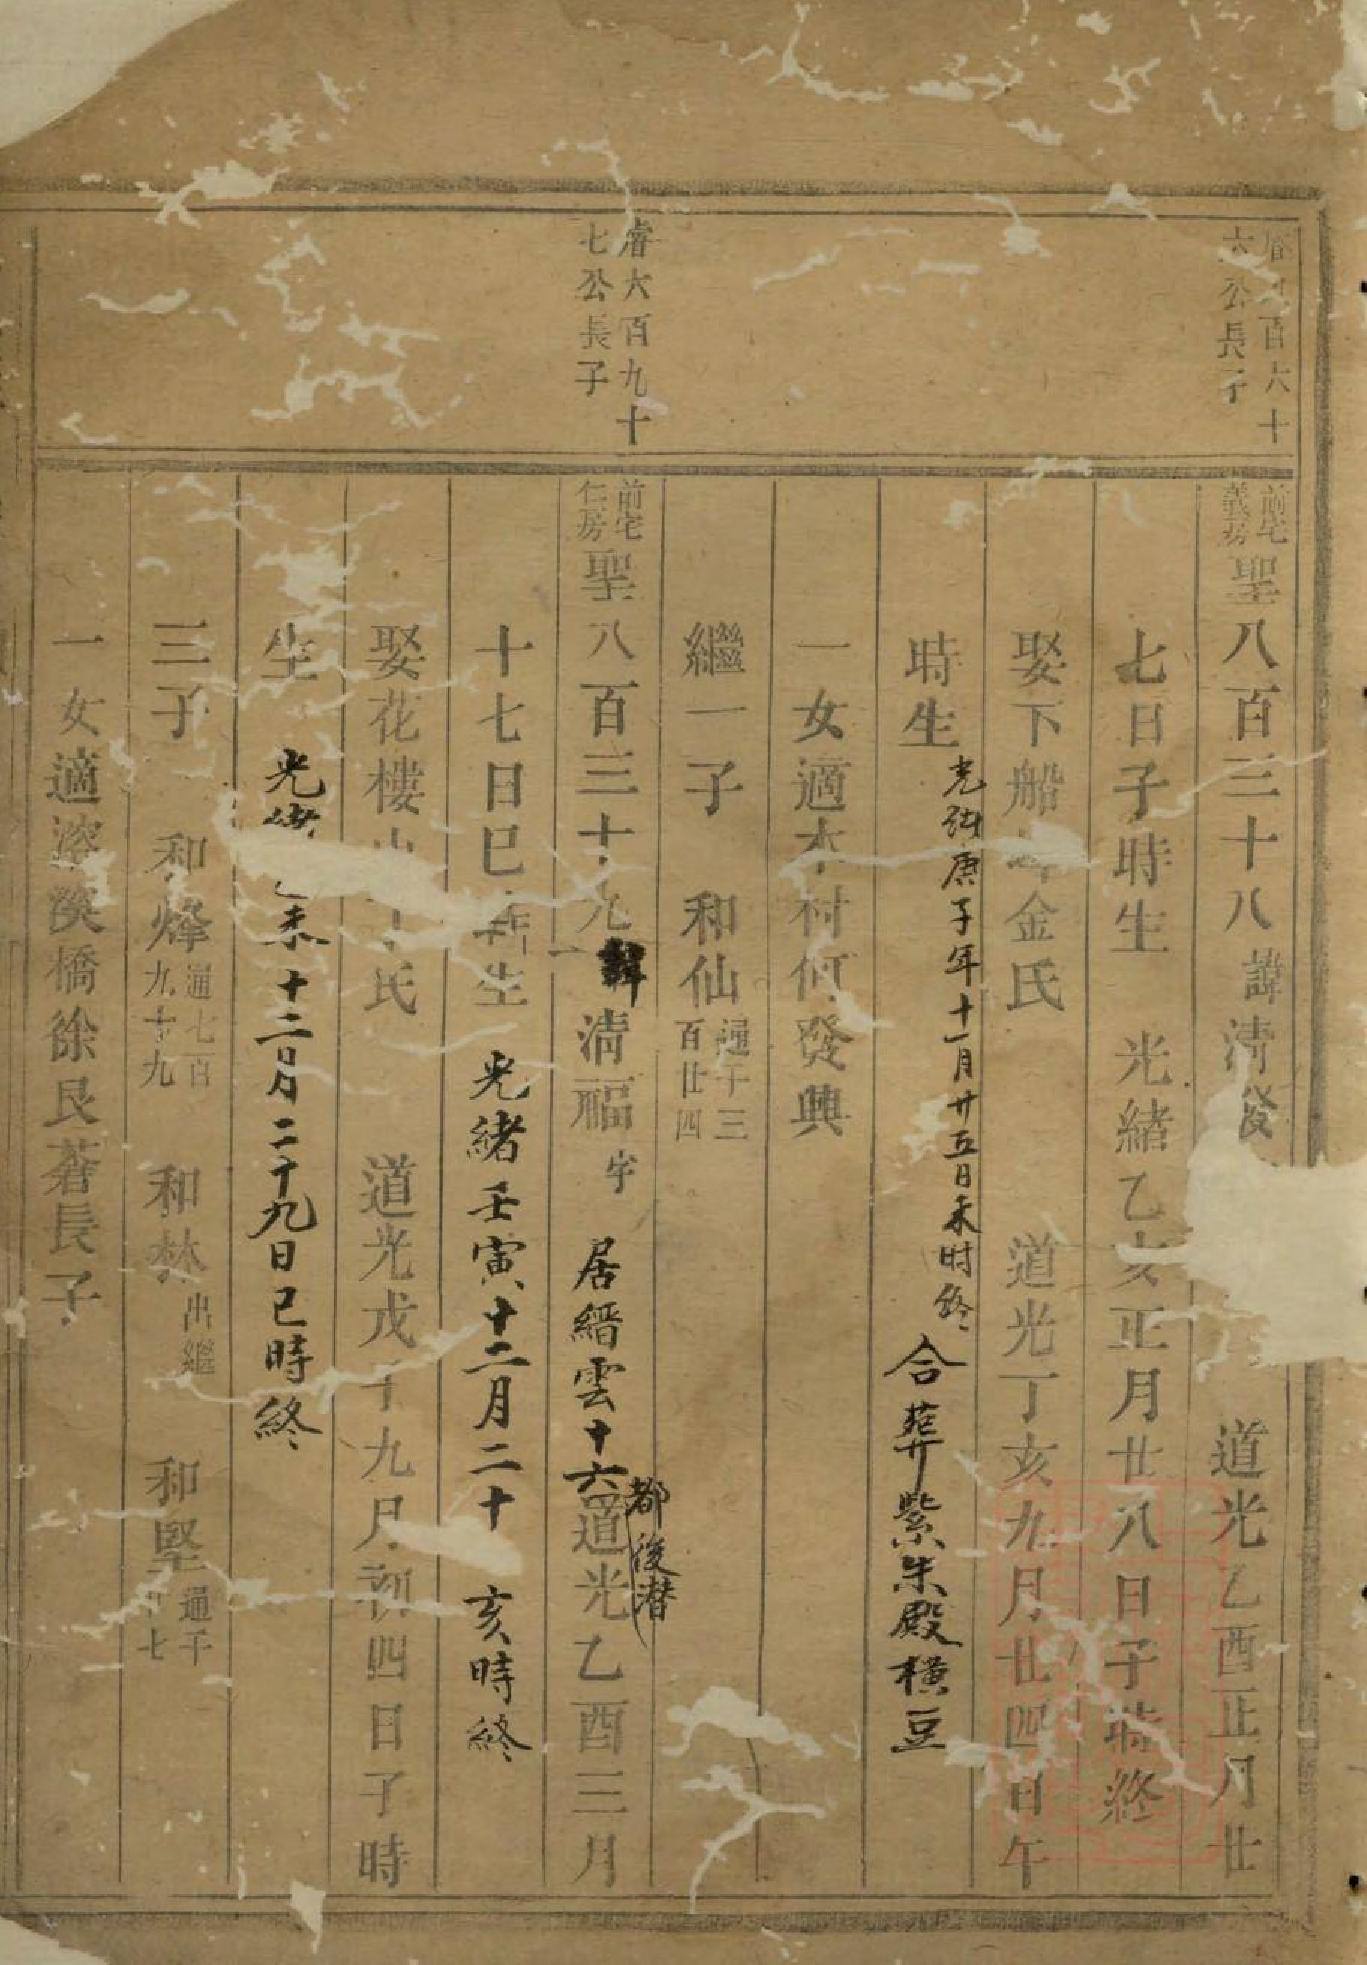 百六十
六公長子
前宅
義房
聖八百三十八 諱清發 道光乙酉正月廿
七日子時生 光緒乙亥正月廿八日子時終
娶下船 金氏 道光丁亥九月廿四日午
時生 光緒庚子年十一月廿五日未时終 合葬紫朱殿横豆
一女適本村何發興
繼一子 和仙
通千三
百廿四
睿六百九十
七公長子
前宅
仁房
聖八百三十九 清福 字 居縉雲十六都後潜 道光乙酉三月
十七日巳時生 光緒壬寅十二月二十 亥時終
娶花樓山 氏 道光戊子九月初四日子時
生 光緒 未十二月二十九日已時終
三子 和烽
通七百
九十九
和林 出繼 和堅
通千
七
一女適 溪橋徐艮蒼長子